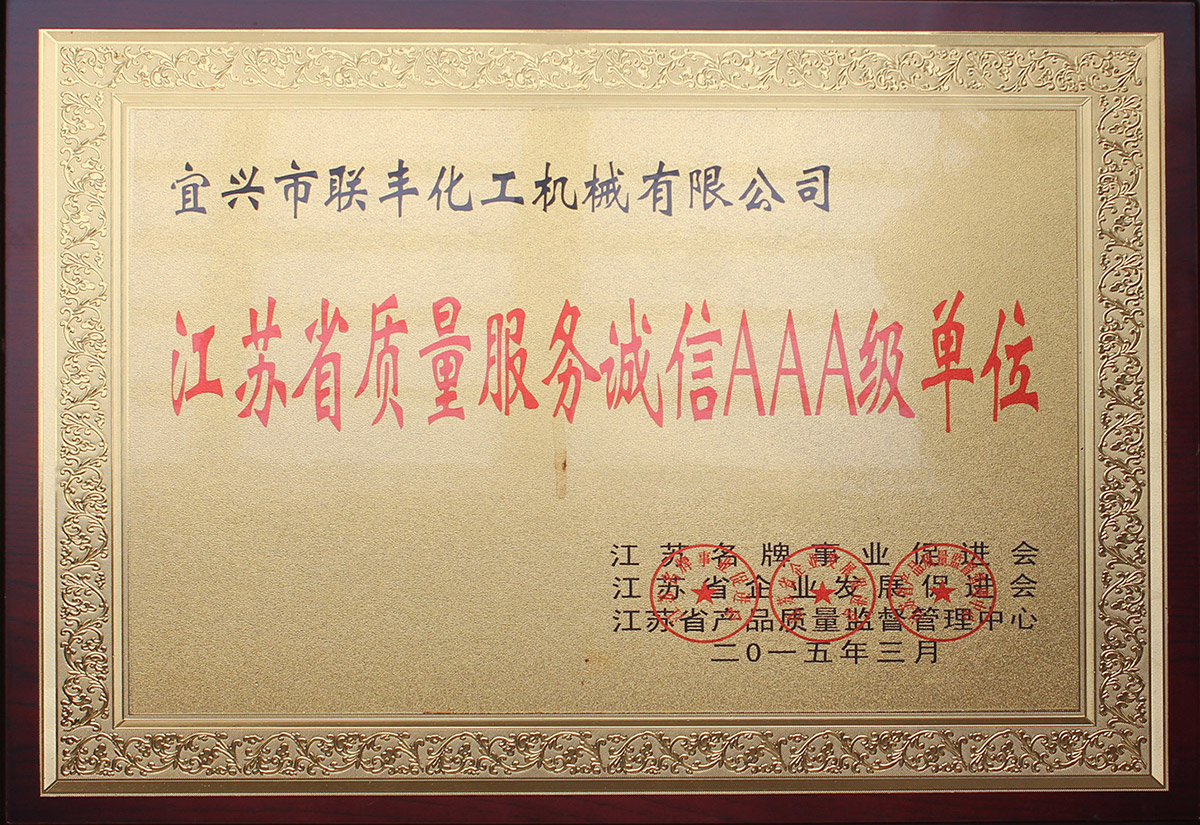 宜兴市联丰化工机械有限公司
江苏省质量服务诚信AAA级单位
江苏名牌事业促进会
江苏省企业发展促进会
江苏省产品质量监督管理中心
二0一五年三月